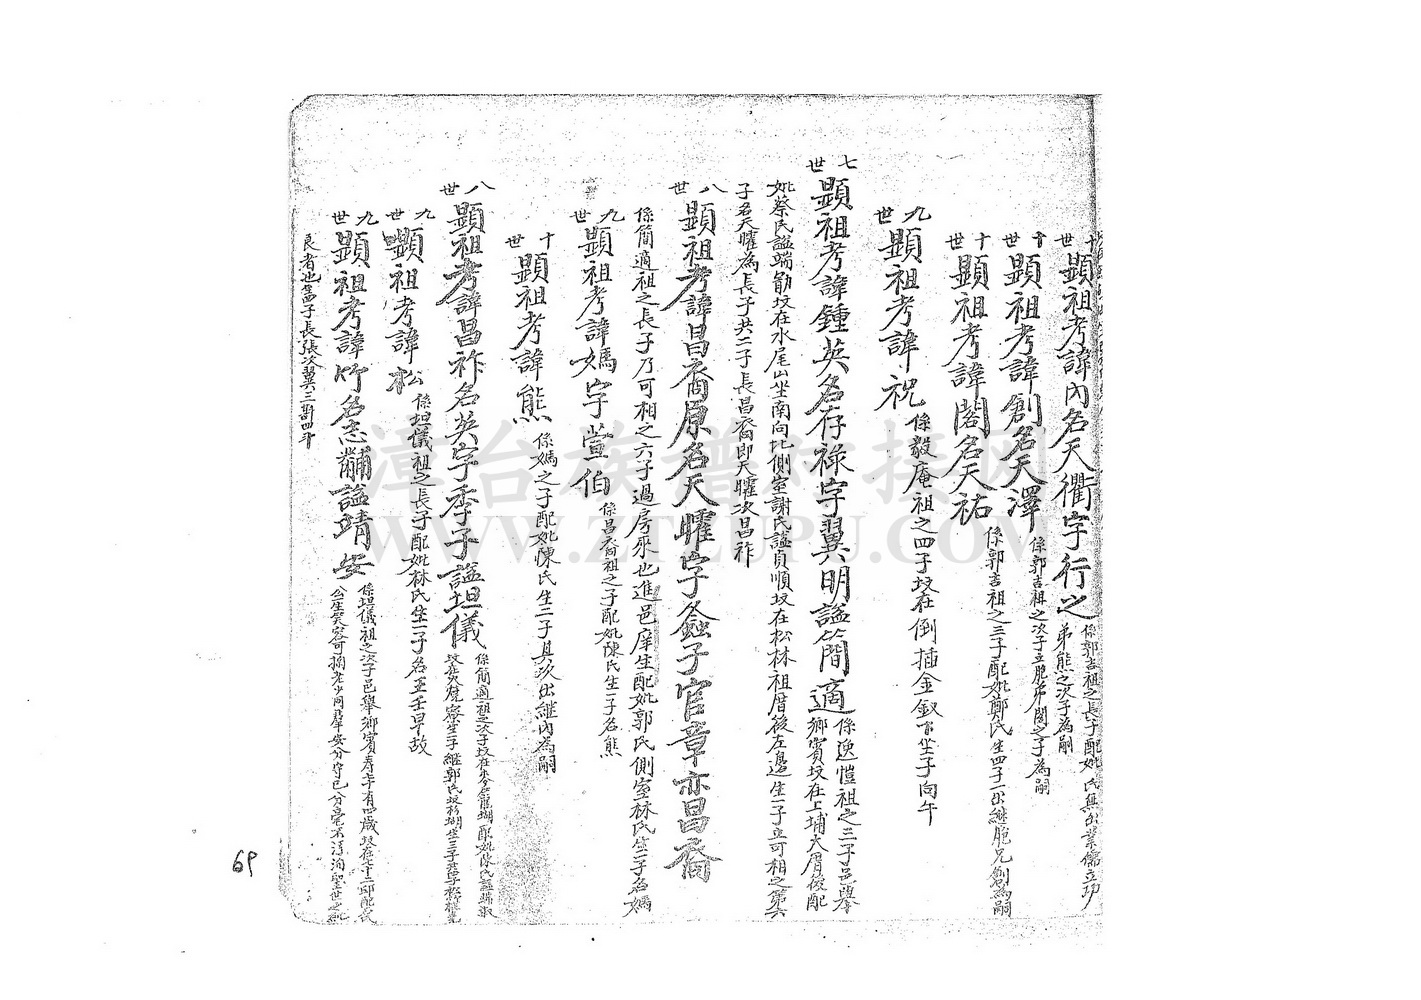 十世 顯祖考諱內名天衢字行之 係郭吉祖之長子配妣 氏無出業儒立功
弟熊之次子為嗣
十世 顯祖考諱創名天澤 係郭吉祖之次子立胞弟閣之子為嗣
十世 顯祖考諱閣名天祐 係郭吉祖之三子配妣鄭氏生四子一出繼胞兄創為嗣
九世 顯祖考諱祝 係毅庵祖之四子坟在倒插金釵 坐子向午
七世 顯祖考諱鍾英名存祿字翼明謚簡適 係逸愷祖之三子邑舉
鄉賓坟在上埔大厝後配
妣蔡氏謚端勤坟在水尾山坐南向北側室謝氏謚貞順坟在松林祖厝後左邊生一子立可相之第六
子名天曜為長子共二子長昌裔即天曜次昌祚
八世 顯祖考諱昌裔原名天曜字 子官章亦昌裔
係簡適祖之長子乃可相之六子過房來也進邑庠生配妣郭氏側室林氏生一子名媽
九世 顯祖考諱媽字萱伯 係昌裔祖之子配妣陳氏生一子名熊
十世 顯祖考諱熊 係媽之子配妣陳氏生二子具玖出繼內為嗣
八世 顯祖考諱昌祚名英字季子謚坦儀 係簡適祖之次子坟在 配妣陳氏謚端淑
坟在 寮生一子繼郭氏坟 湖生三子共四子松
九世 顯祖考諱松 係坦儀祖之長子配妣林氏生一子名 壬早故
九世 顯祖考諱竹名志黼謚靖安 係坦儀祖之次子邑舉鄉賓壽 有四歲坟在七十二坵配氏
公生 容可掬老少同群安分守己分毫不 洵聖世之
良者也 子長張次翼三 四平
漳台族譜对接网
WWW.ZTZUPU.COM
69